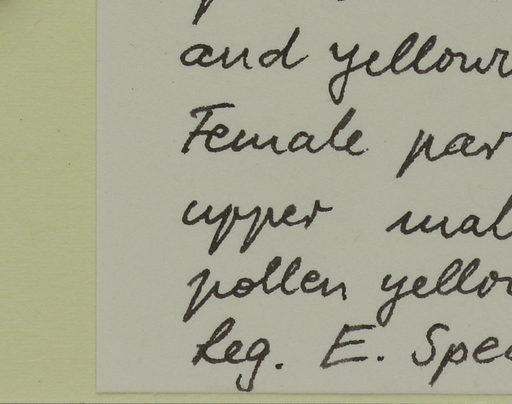 and yellow
Female par
upper mal
pollen yello
leg. E. Spe